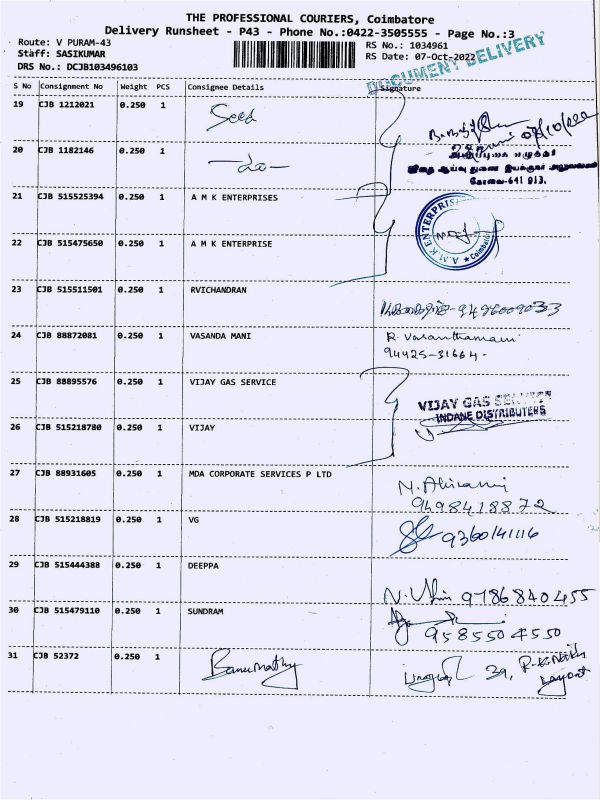 THE PROFESSIONAL COURIERS, Coimbatore
Delivery Runsheet - P43 - Phone No.:0422-3505555 - Page No.:3
Route: V PURAM-43
RS No.: 1034961
Staff: SASIKUMAR
RS Date: 07-Oct-2022
DRS No.: DCJB103496103
DOCUMENT DELIVERY
S No Consignment No Weight PCS Consignee Details Signature
19 CJB 1212021 0.250 1 Seed
20 CJB 1182146 0.250 1
கோவை-641 013.
21 CJB 515525394 0.250 1 A M K ENTERPRISES
A.M.K ENTERPRISES ★ Coimbatore
22 CJB 515475650 0.250 1 A M K ENTERPRISE
23 CJB 515511501 0.250 1 RVICHANDRAN
24 CJB 88872081 0.250 1 VASANDA MANI R. Vasanthamani
94425-31664.
25 CJB 88895576 0.250 1 VIJAY GAS SERVICE
VIJAY GAS SERVICE
INDANE DISTRIBUTERS
26 CJB 515218780 0.250 1 VIJAY
27 CJB 88931605 0.250 1 MDA CORPORATE SERVICES P LTD N. Abirami
9498418872
28 CJB 515218819 0.250 1 VG 9360141116
29 CJB 515444388 0.250 1 DEEPPA 9786840455
30 CJB 515479110 0.250 1 SUNDRAM
9585504550
31 CJB 52372 0.250 1 Banumathy 39, R.K. Naidu
Layout